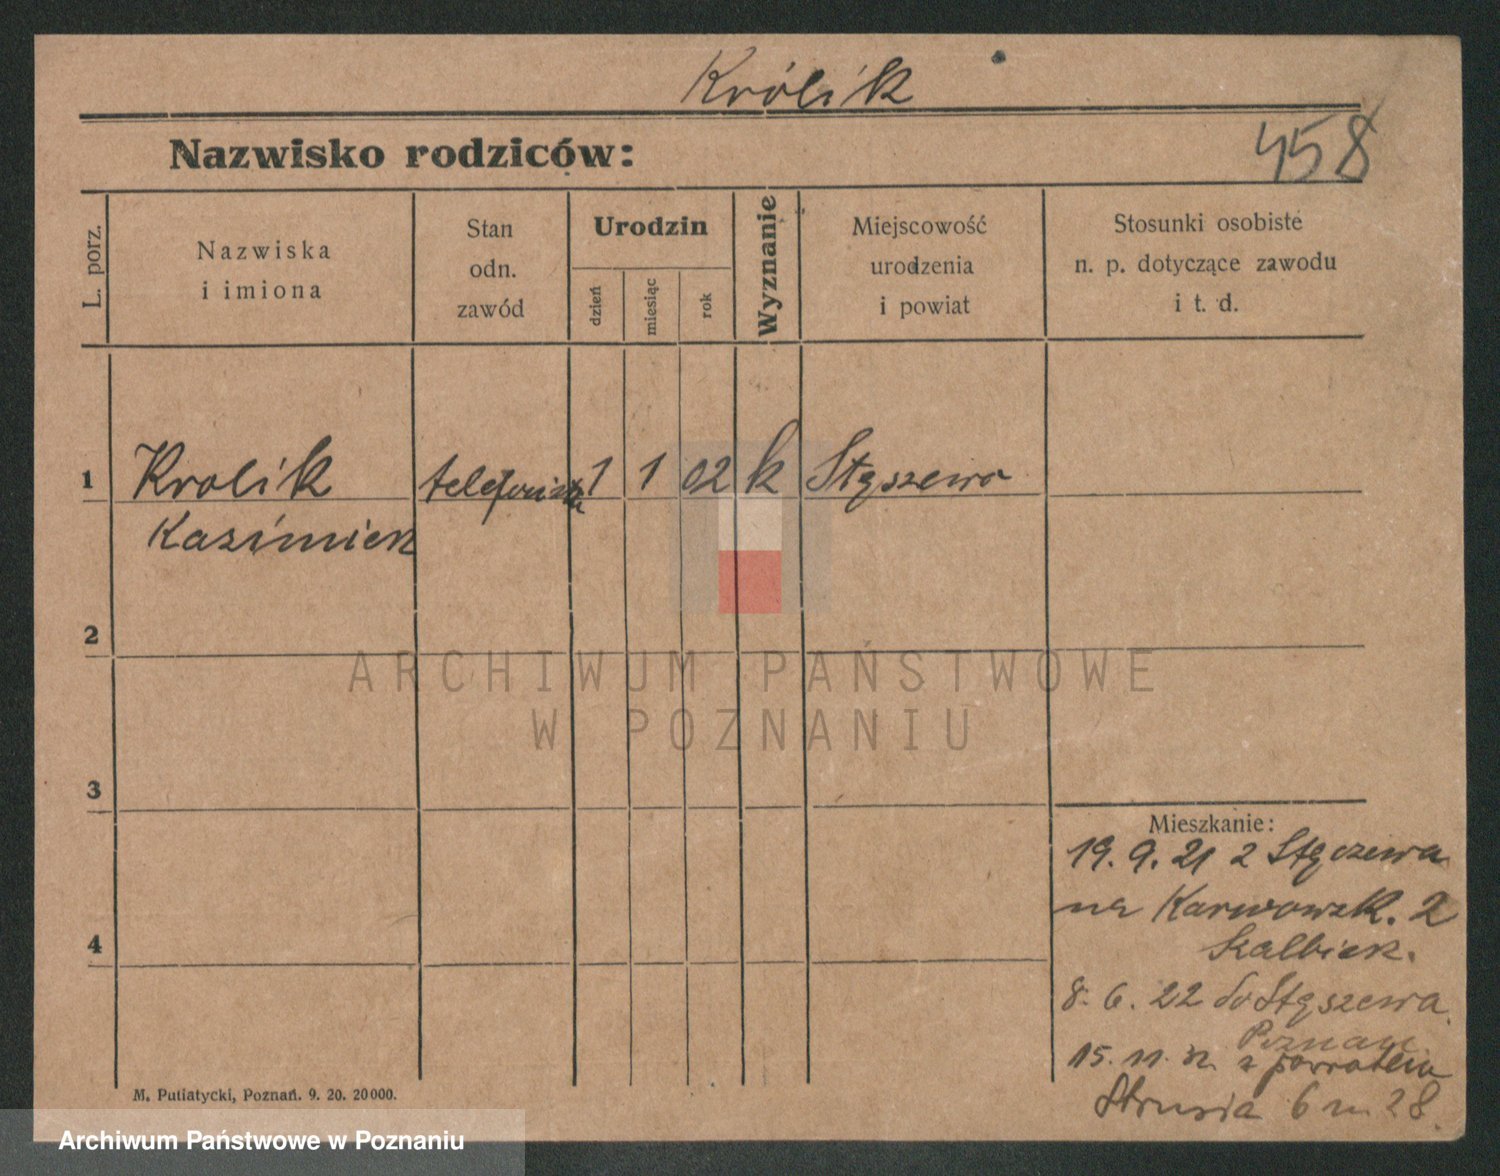 Królik
458
Nazwisko rodziców:
L. porz.
Nazwiska
i imiona
Stan
odn.
zawód
Urodzin
dzień
miesiąc
rok
Wyznanie
Miejscowość
urodzenia
i powiat
Stosunki osobiste
n. p. dotyczące zawodu
i t. d.
1
Krolik telefonista 1 1 02 k Stęszewo
Kazimierz
2
ARCHIWUM PAŃSTWOWE
W POZNANIU
3
Mieszkanie:
19. 9. 21 z Stęszewa
na Karwowsk. 2
4
8. 6. 22 do Stęszewa.
Poznań
15. 11. z powrotem
Strusia 6 m 28.
M. Putiatycki, Poznań. 9. 20. 20000.
Archiwum Państwowe w Poznaniu